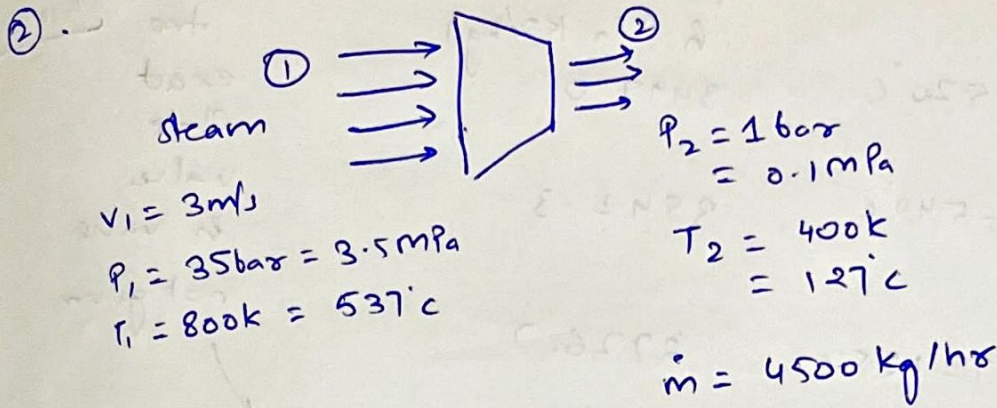 ② .
①
②
steam
V₁ = 3m/s
P₁ = 35bar = 3.5 MPa
T₁ = 800k = 537°c
P₂ = 1 bar
= 0.1 MPa
T₂ = 400k
= 127°c
ṁ = 4500 kg/hr